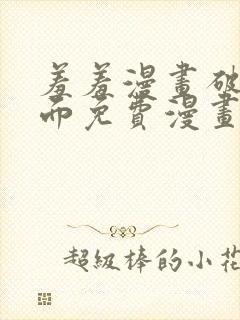 羞羞漫畫破
而免費漫畫
超級棒的小花